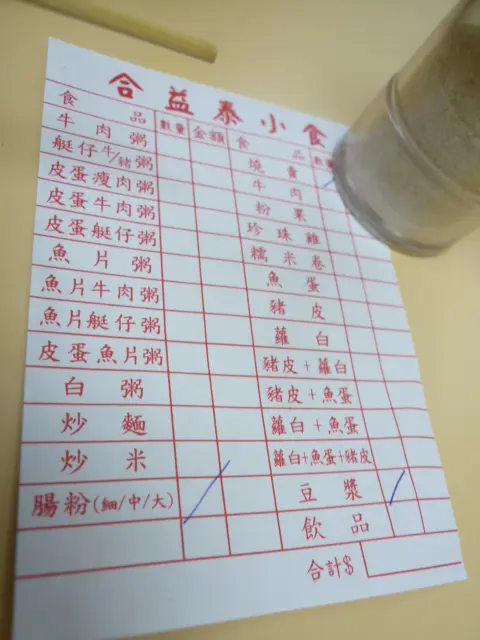 合益泰小食
食品 數量 金額 食品 數量
牛肉粥 燒賣
艇仔牛/豬粥 牛肉
皮蛋瘦肉粥 粉果
皮蛋牛肉粥 珍珠雞
皮蛋艇仔粥 糯米卷
魚片粥 魚蛋
魚片牛肉粥 豬皮
魚片艇仔粥 蘿白
皮蛋魚片粥 豬皮+蘿白
白粥 豬皮+魚蛋
炒麵 蘿白+魚蛋
炒米 蘿白+魚蛋+豬皮
腸粉(細/中/大) 豆漿
飲品
合計$